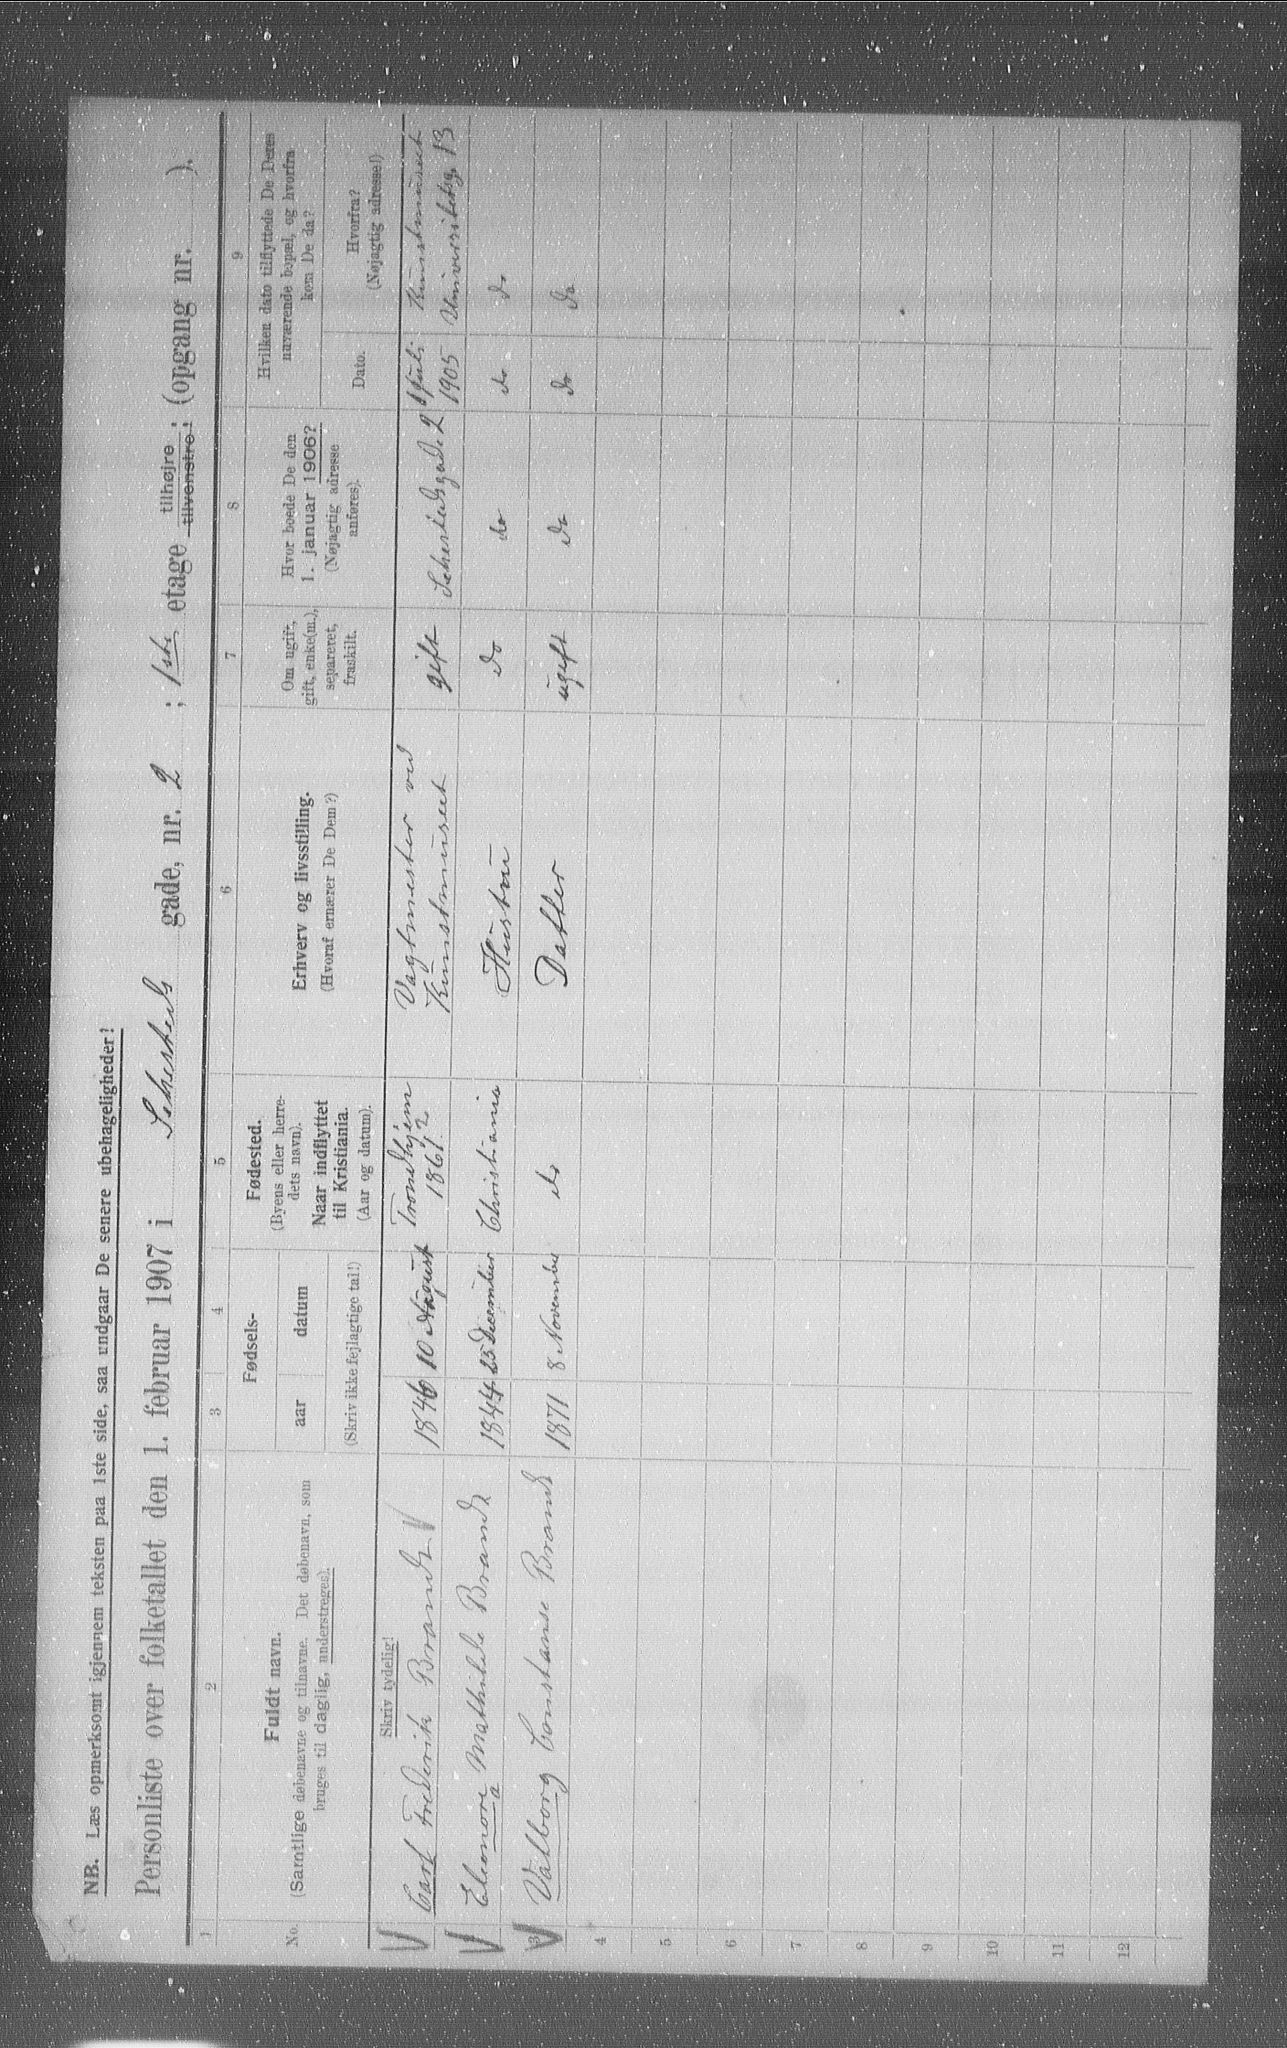 NB. Læs opmerksomt igjennem teksten paa 1ste side, saa undgaar De senere ubehageligheder!
Personliste over folketallet den 1. februar 1907 i Sehesteds gade, nr. 2 ; 1ste etage tilhøjre tilvenstre ; (opgang nr. ).
1 2 3 4 5 6 7 8 9
No.
Fuldt navn.
(Samtlige døbenavne og tilnavne. Det døbenavn, som
bruges til daglig, understreges).
Fødsels-
aar datum
(Skriv ikke fejlagtige tal!)
Fødested.
(Byens eller herre-
dets navn).
Naar indflyttet
til Kristiania.
(Aar og datum).
Erhverv og livsstilling.
(Hvoraf ernærer De Dem?)
Om ugift,
gift, enke(m.),
separeret,
fraskilt.
Hvor boede De den
1. januar 1906?
(Nøjagtig adresse
anføres).
Hvilken dato tilflyttede De Deres
nuværende bopæl, og hvorfra
kom De da?
Dato.
Hvorfra?
(Nøjagtig adresse!)
Skriv tydelig!
Carl Frederik Brandt 1846 10 August Trondhjem 1861 Vagtmester ved Kunstmuseet gift Sehestedsgade 2 1 Juli 1905 Kunstmuseet Universitetsg. 13
Eleonora Mathilde Brandt 1844 25 December Christiania Hustru do do do do
3 Valborg Constanse Brandt 1871 8 November do Datter ugift do do do
4
5
6
7
8
9
10
11
12